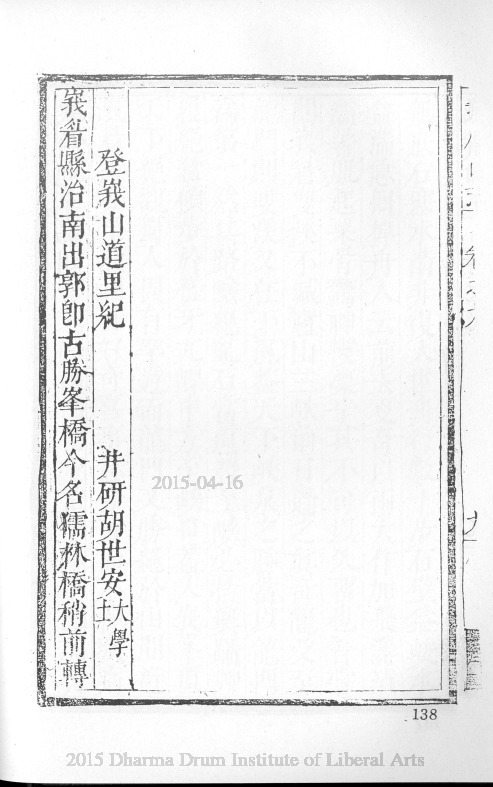 登峩山道里紀 井研胡世安大學士
峩眉縣治南出郭卽古勝峯橋今名儒林橋稍前轉
2015-04-16
138
2015 Dharma Drum Institute of Liberal Arts